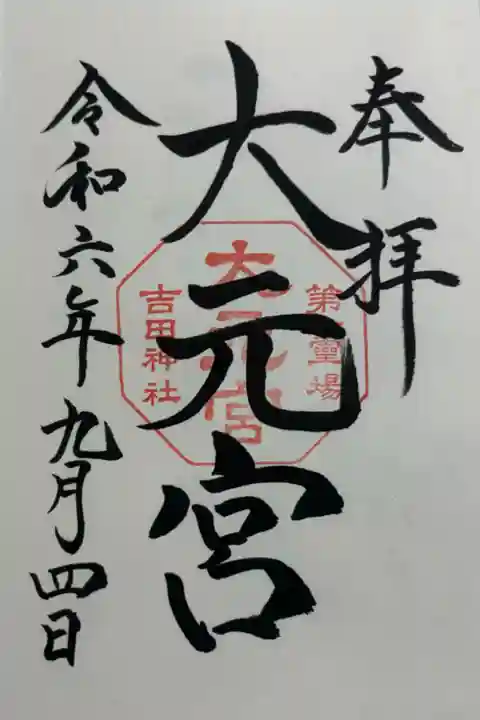 奉拝
大元宮
令和六年九月四日
第一霊場
大元宮
吉田神社